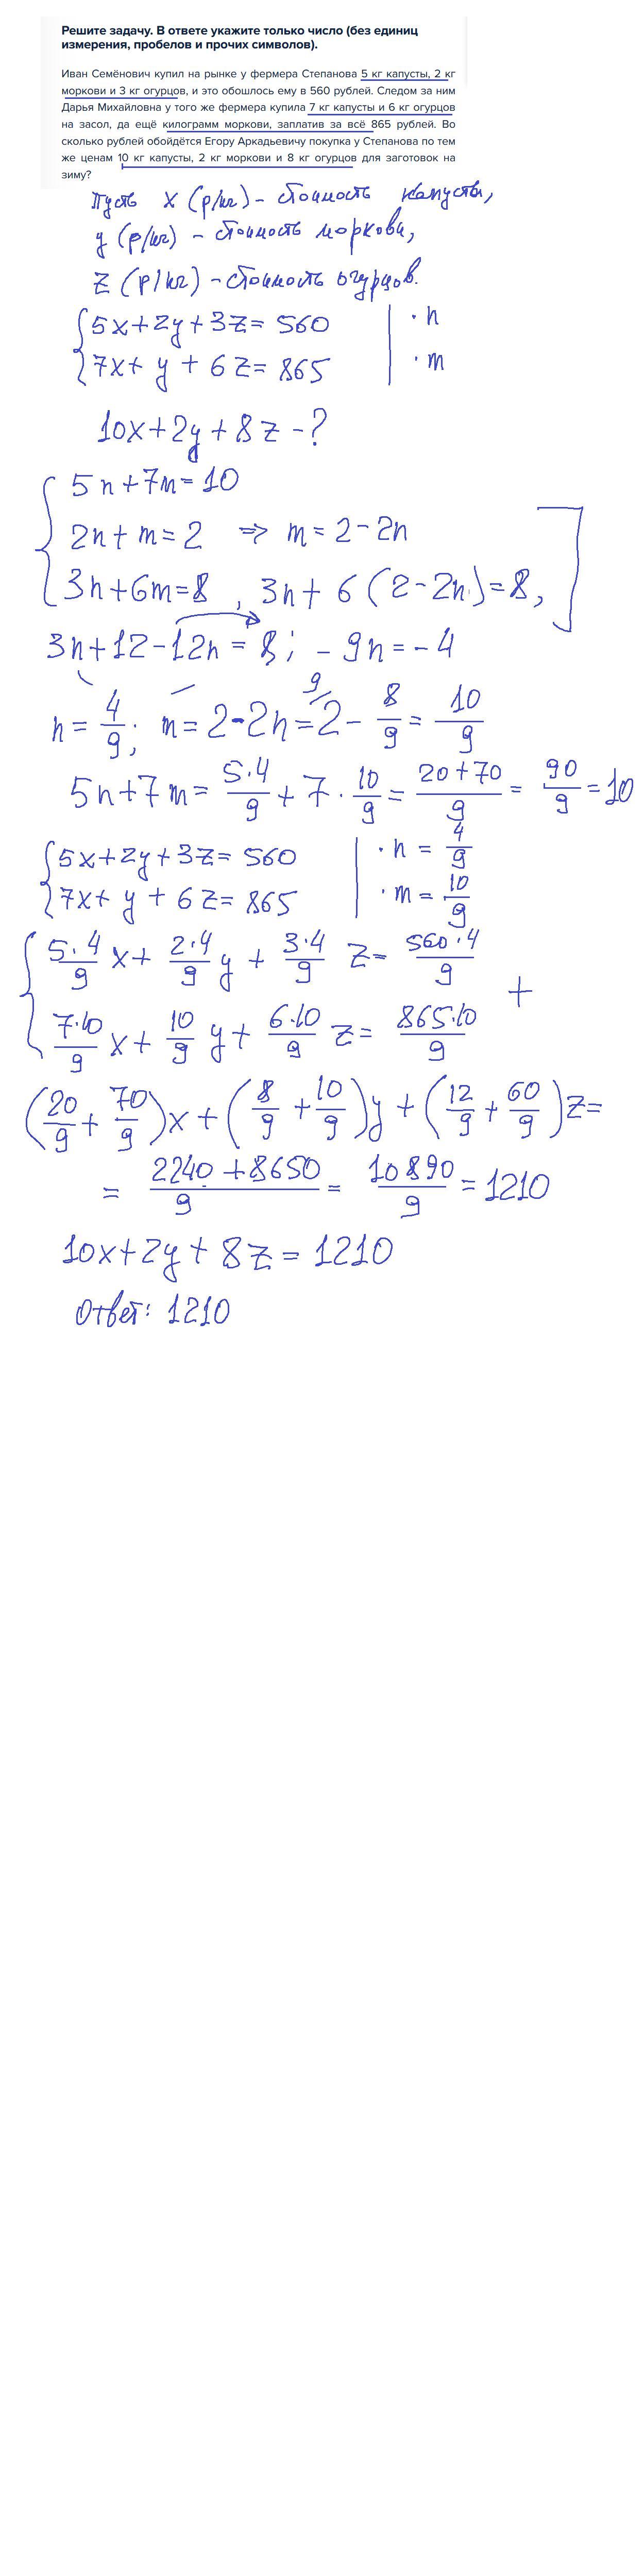 Решите задачу. В ответе укажите только число (без единиц
измерения, пробелов и прочих символов).
Иван Семёнович купил на рынке у фермера Степанова 5 кг капусты, 2 кг
моркови и 3 кг огурцов, и это обошлось ему в 560 рублей. Следом за ним
Дарья Михайловна у того же фермера купила 7 кг капусты и 6 кг огурцов
на засол, да ещё килограмм моркови, заплатив за всё 865 рублей. Во
сколько рублей обойдётся Егору Аркадьевичу покупка у Степанова по тем
же ценам 10 кг капусты, 2 кг моркови и 8 кг огурцов для заготовок на
зиму?
Пусть x (р/кг) - стоимость капусты,
y (р/кг) - стоимость моркови,
z (р/кг) - стоимость огурцов.
{5x+2y+3z= 560 | · n
{7x+ y + 6z= 865 | · m
10x+2y+8z - ?
{ 5n+7m=10
2n+m=2 => m=2-2n
3n+6m=8, 3n+6(2-2n)=8, ]
3n+12-12n=8; -9n=-4
n=4/9; m=2-2n=2-8/9=10/9
5n+7m=5·4/9+7·10/9=20+70/9=90/9=10
{5x+2y+3z=560 | · n=4/9
{7x+ y + 6z=865 | · m=10/9
{ 5·4/9 x+ 2·4/9 y + 3·4/9 z= 560·4/9
7·10/9 x+ 10/9 y+ 6·10/9 z= 865·10/9 +
(20/9+70/9)x+(8/9+10/9)y+(12/9+60/9)z=
= 2240+8650/9 = 10890/9 =1210
10x+2y+8z=1210
Ответ: 1210